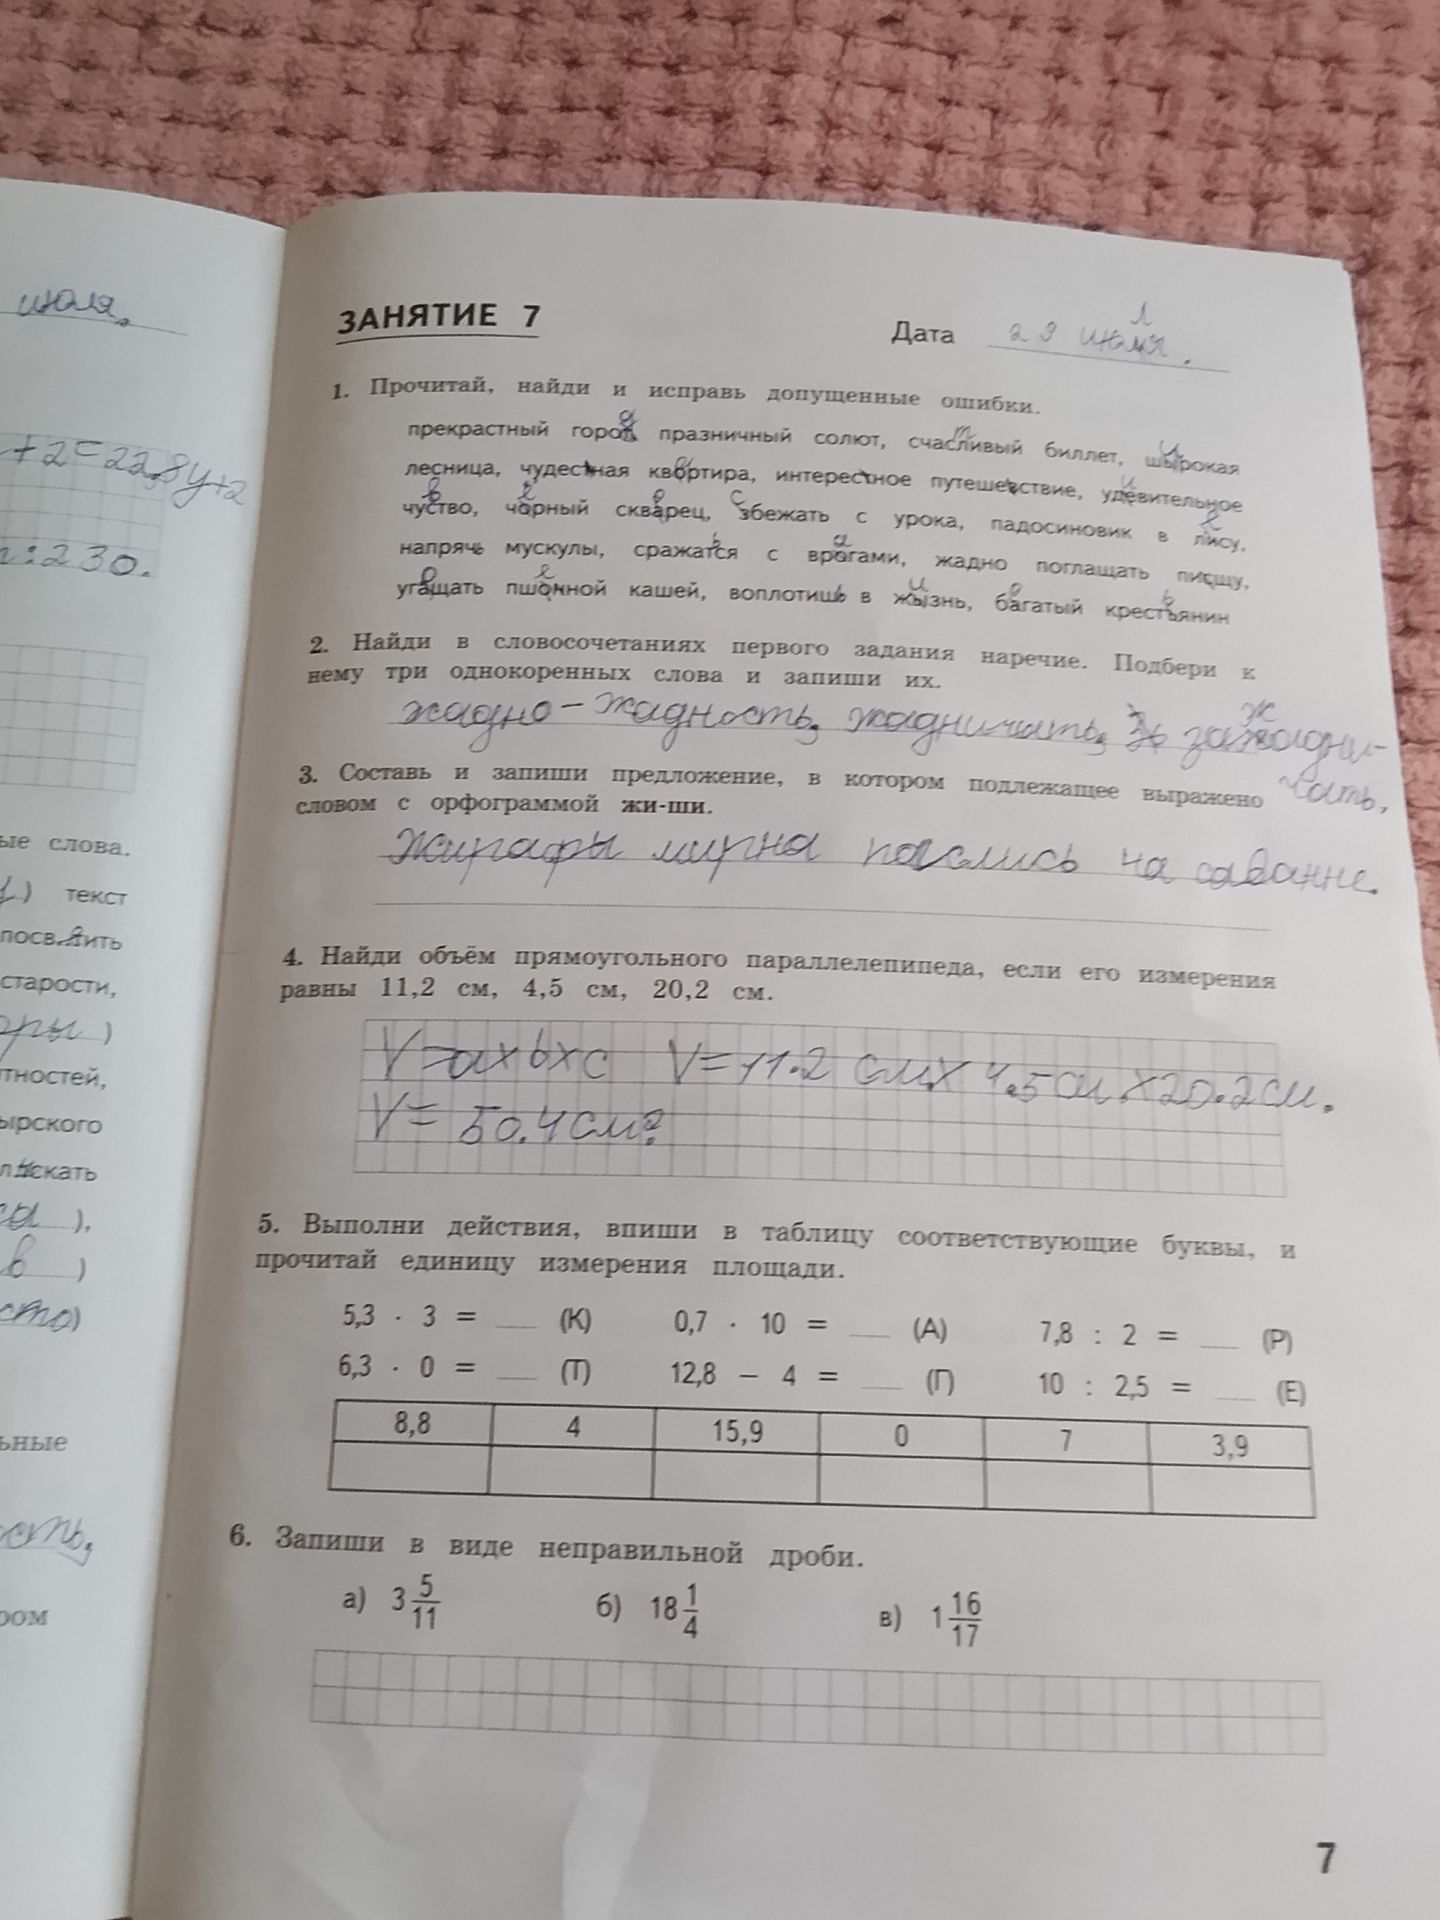 июля.
ЗАНЯТИЕ 7
Дата 29 июля.
1. Прочитай, найди и исправь допущенные ошибки.
прекрастный горот, празничный солют, счасливый биллет, шырокая
лесница, чудестная квортира, интерестное путешевствие, удевительное
чуство, чорный скварец, збежать с урока, падосиновик в лису,
напрячь мускулы, сражатся с врогами, жадно поглащать писщу,
угащать пшонной кашей, воплотишь в жызнь, багатый крестъянин
2. Найди в словосочетаниях первого задания наречие. Подбери к
нему три однокоренных слова и запиши их.
жадно – жадность, жадничать, зажадни-
чать,
3. Составь и запиши предложение, в котором подлежащее выражено
словом с орфограммой жи-ши.
Жирафы мирна паслись на саванне.
4. Найди объём прямоугольного параллелепипеда, если его измерения
равны 11,2 см, 4,5 см, 20,2 см.
V=axbxc V=11.2 см.x 4.5см.x20.2см.
V= 50.4см²
5. Выполни действия, впиши в таблицу соответствующие буквы, и
прочитай единицу измерения площади.
5,3 · 3 = __ (К) 0,7 · 10 = __ (А) 7,8 : 2 = __ (Р)
6,3 · 0 = __ (Т) 12,8 − 4 = __ (Г) 10 : 2,5 = __ (Е)
8,8 4 15,9 0 7 3,9
6. Запиши в виде неправильной дроби.
а) 3 5/11 б) 18 1/4 в) 1 16/17
7
+2=22,8y+2
:230.
ые слова.
) текст
посв ить
старости,
оры )
тностей,
ырского
кать
),
в )
сто)
ьные
ость,
ром